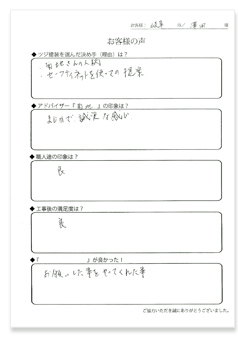 お客様： 岐阜 市／ 澤田 様
お客様の声
◆ ツジ建装を選んだ決め手（理由）は？
・菊地さんの人柄
・セーフティネットを使っての提案
◆ アドバイザー『菊地』の印象は？
まじめで誠実な感じ
◆ 職人達の印象は？
良
◆ 工事後の満足度は？
良
◆『　　　　　　　』が良かった！
お願いした事をやってくれた事
ご協力いただき誠にありがとうございました。